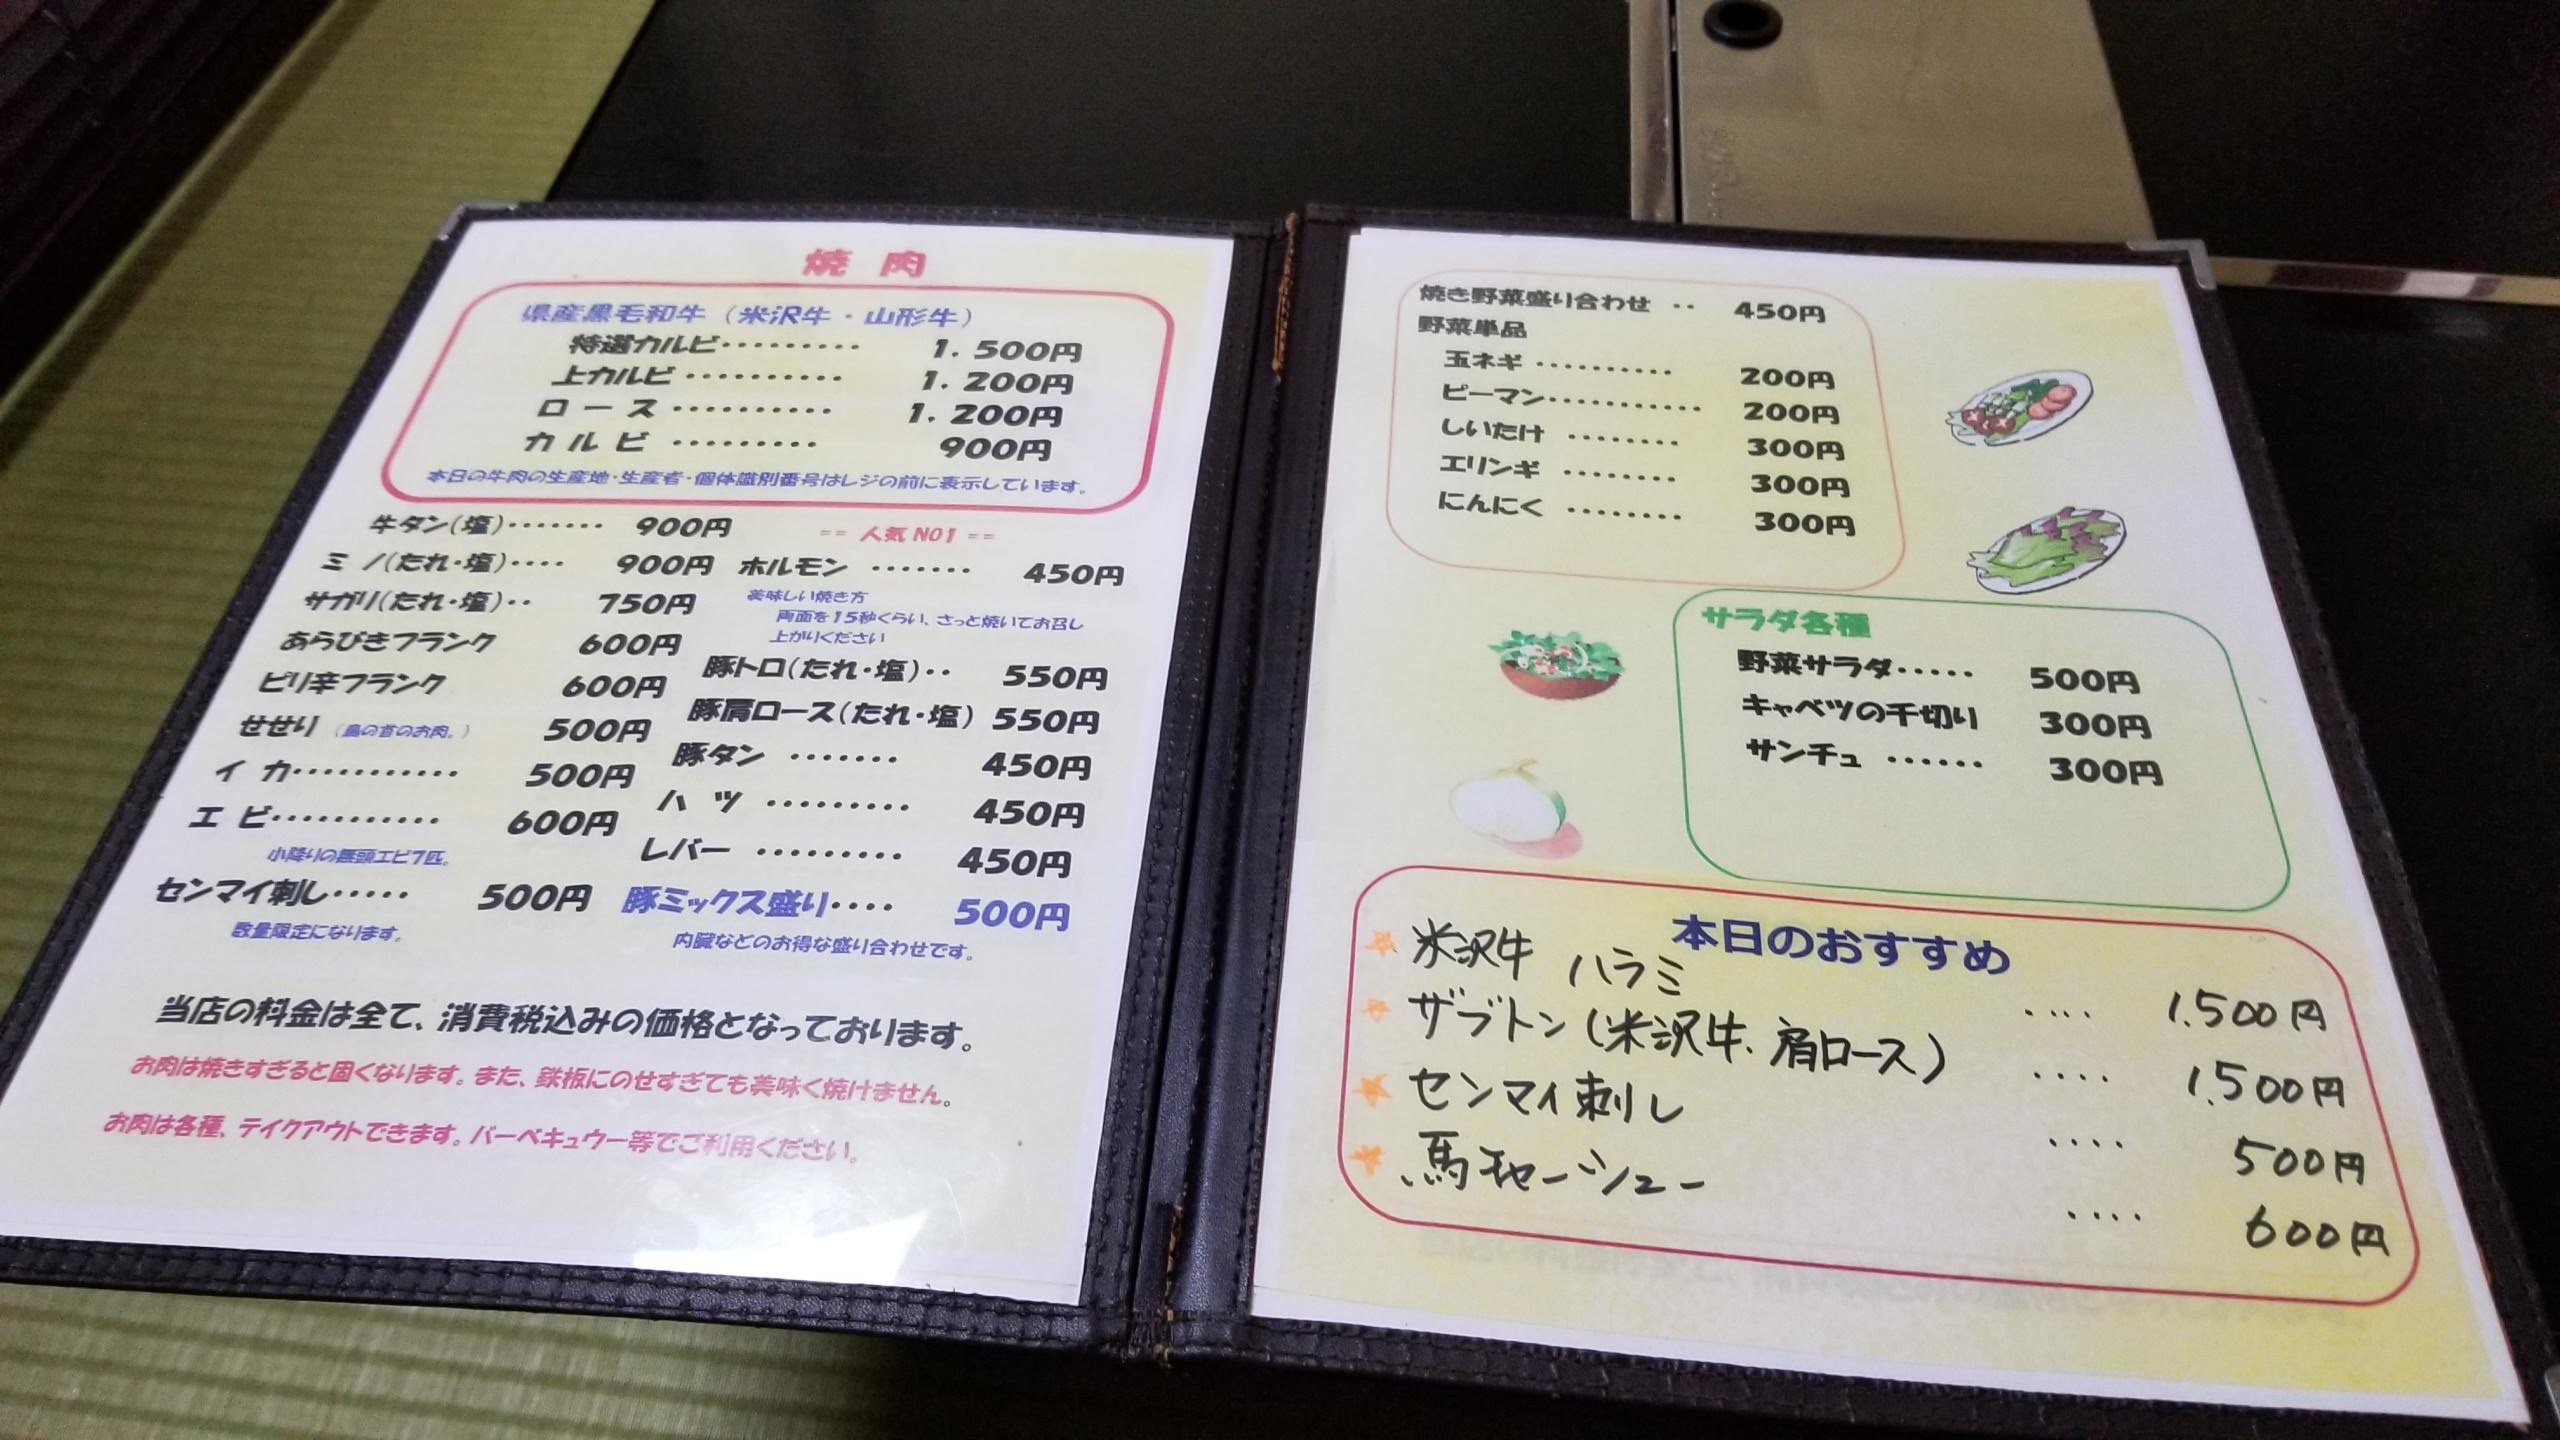 焼 肉
県産黒毛和牛（米沢牛・山形牛）
特選カルビ・・・・・・・・・ 1．500円
上カルビ・・・・・・・・・・ 1．200円
ロース・・・・・・・・・・ 1．200円
カルビ・・・・・・・・・ 900円
本日の牛肉の生産地・生産者・個体識別番号はレジの前に表示しています。
牛タン（塩）・・・・・・・ 900円
ミノ（たれ・塩）・・・・ 900円
サガリ（たれ・塩）・・ 750円
あらびきフランク 600円
ピリ辛フランク 600円
せせり（鳥の首のお肉。） 500円
イカ・・・・・・・・・・・ 500円
エビ・・・・・・・・・・・ 600円
小降りの無頭エビ7匹。
センマイ刺し・・・・・ 500円
数量限定になります。
== 人気 NO1 ==
ホルモン・・・・・・・ 450円
美味しい焼き方
両面を15秒くらい、さっと焼いてお召し
上がりください
豚トロ（たれ・塩）・・ 550円
豚肩ロース（たれ・塩） 550円
豚タン・・・・・・・ 450円
ハツ・・・・・・・・・ 450円
レバー・・・・・・・・・ 450円
豚ミックス盛り・・・・ 500円
内臓などのお得な盛り合わせです。
当店の料金は全て、消費税込みの価格となっております。
お肉は焼きすぎると固くなります。また、鉄板にのせすぎても美味く焼けません。
お肉は各種、テイクアウトできます。バーベキュウー等でご利用ください。
焼き野菜盛り合わせ ・・ 450円
野菜単品
玉ネギ・・・・・・・・・・ 200円
ピーマン・・・・・・・・・・・ 200円
しいたけ・・・・・・・・ 300円
エリンギ・・・・・・・・ 300円
にんにく・・・・・・・・ 300円
サラダ各種
野菜サラダ・・・・・ 500円
キャベツの千切り 300円
サンチュ・・・・・・ 300円
本日のおすすめ
☆ 米沢牛 ハラミ ・・・・ 1.500円
☆ ザブトン（米沢牛、肩ロース） ・・・・ 1.500円
☆ センマイ刺し ・・・・ 500円
☆ 馬チャーシュー ・・・・ 600円